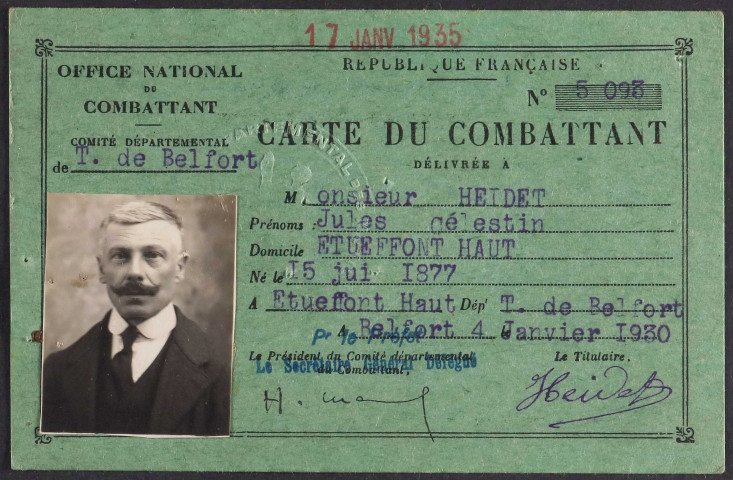 17 JANV 1935
OFFICE NATIONAL
DU
COMBATTANT
COMITÉ DÉPARTEMENTAL
de T. de Belfort
RÉPUBLIQUE FRANÇAISE
N° 5 093
CARTE DU COMBATTANT
DÉLIVRÉE A
Monsieur HEIDET
Prénoms : Jules Célestin
Domicile ETUEFFONT HAUT
Né le 15 jui 1877
A Etueffont Haut Dépt T. de Belfort
A Belfort 4 Janvier 1930
Pr le Préfet
Le Président du Comité départemental
du Combattant,
Le Secrétaire Général Délégué
Le Titulaire.
Heidet